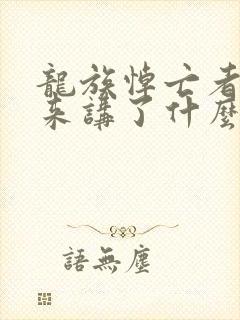 龍族悼亡者
來講了什麼
語無塵